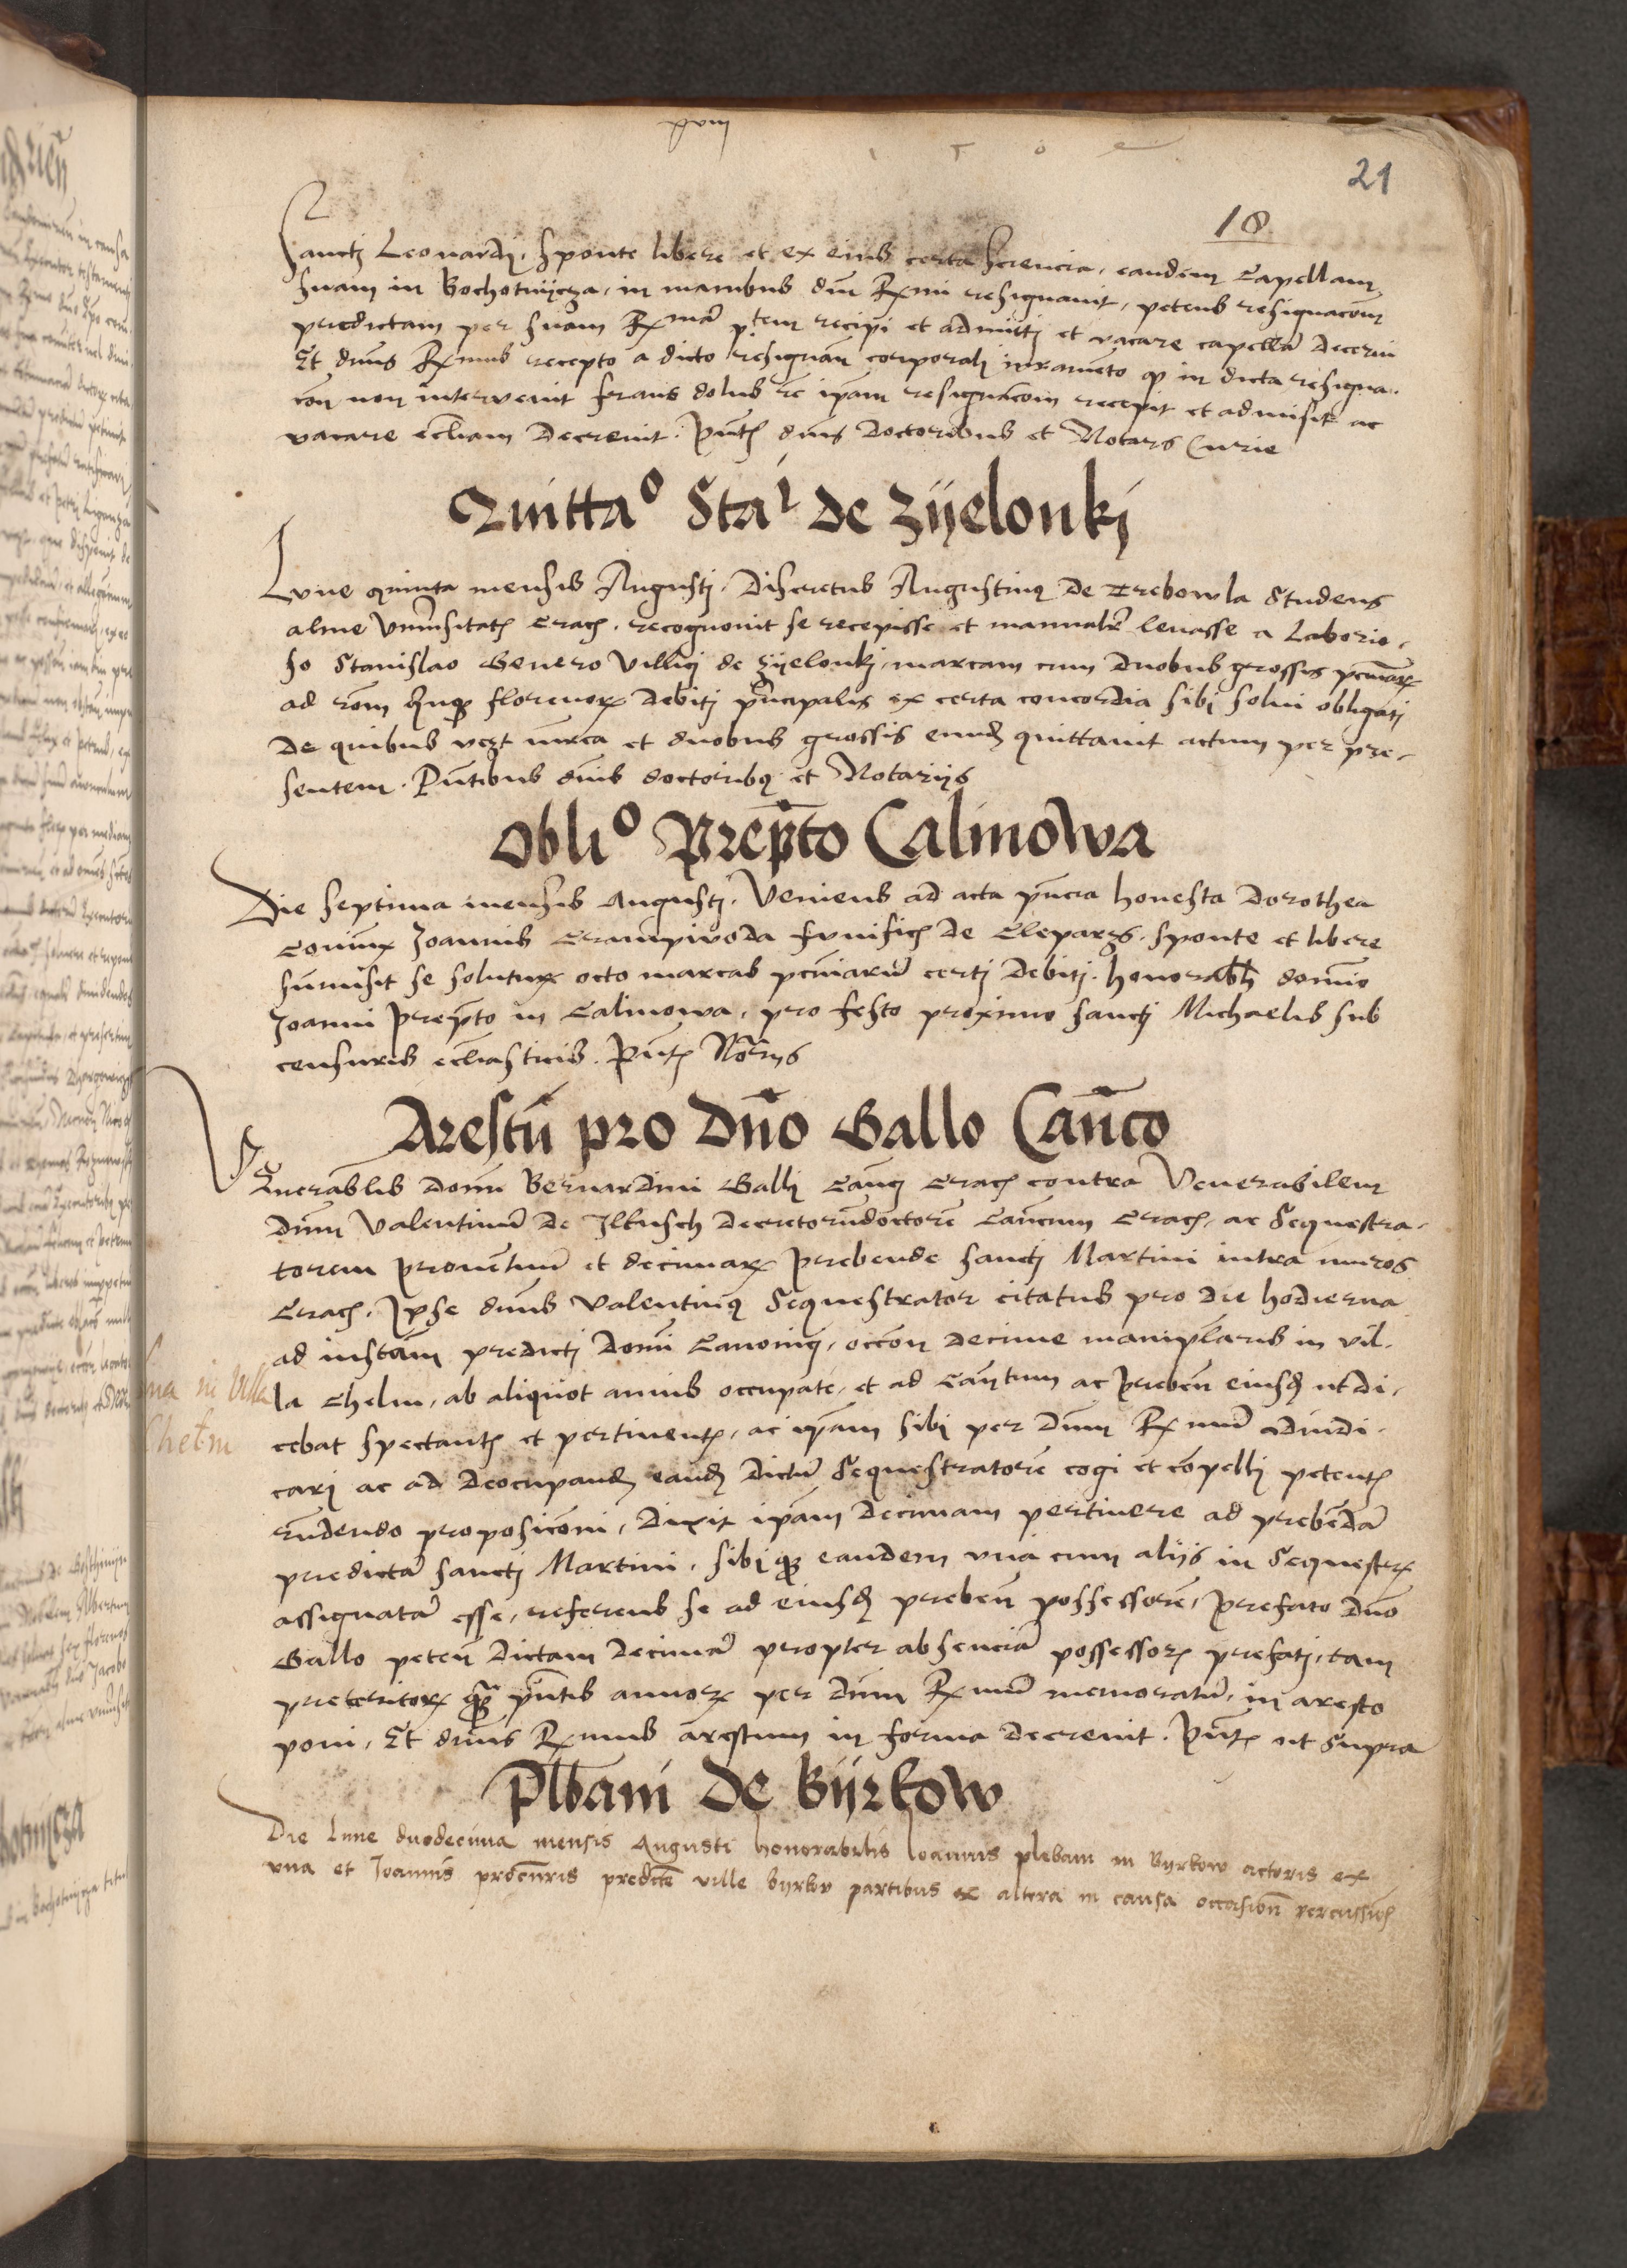 xviij
21
18
Sanctj Leonardj. sponte libere et ex eius certa sciencia, eandem Capellam
suam in Bochotnijcza, in manibus dnī Rxmi resignauit, petens resignacom̄
predictam per suam Rxmā p.tem recipi et admitti et vacare capellā decerni
Et dnūs Rxmus recepto a dicto resignan̄ corporalj iuramento ꝙ in dicta resigna-
con̄ non interuenit fraus dolus ꝛc ip̄am resignacom̄ recepit et admisit ac
vacare ecclīam decreuit. Pn̄tꝭ dnīs doctoribus et Notarijs Curie
Quittaᵒ Staˡ de Zijelonkj
Lune quinta mensis Augustj. Discretus Augustinꝰ de Trebowla Studens
alme Vniūsitatꝭ Cracꝭ. recognouit se recepisse et manualr̄ leuasse a Laborio-
so Stanislao Genero villicj de Zijelonkj, marcam cum duobus grossis pecuniaꝝ
ad rōm quīqꝫ florenoꝝ debitj prīncipalis ex certa concordia sibj solui obligatj
De quibus vꝫt mrca et duobus grossis eundꝫ quittauit actum per pre-
sentem. Pn̄tibus dnīs doctoribꝰ et Notarijs
Obliᵒ Prep̄to Calinowa
Die septima mensis Augustj. Veniens ad acta pn̄cia honesta Dorothea
Coniunx Joannis Crampiwoda funificꝭ de Cleparꝫ. sponte et libere
sūmisit se soluturꝫ octo marcas pecūiarū certj debitj. honorabli domīo
Joanni Prep̄to in Calinowa, pro festo proximo sanctj Michaelis sub
censuris eccliāsticis. Pn̄tꝭ Notr̄ijs
Arestū pro Dn̄o Gallo Can̄co
Venerab̄lis domī Bernardini Gallj Can̄cj Cracꝭ contra Venerabilem
dn̄m Valentinū de Ilkusch decretorū doctorē Can̄cum Cracꝭ, ac Sequestra-
torem prouentuū et decimaꝝ Prebende sanctj Martini intra muros
Cracꝭ. Ipse dn̄us Valentinꝰ Sequestrator citatus pro die hodierna
ad instām predictj domī Canonicj, occōn decime manip̄laris in vil-
la Chelm, ab aliquot annis occupate, et ad Can̄tum ac preben̄ eiusdꝫ ut di-
cebat spectantꝭ et pertinentꝭ, ac ip̄am sibj per dn̄m Rxmū adiudi-
carj ac ad deocupandꝫ eandꝫ dictū Sequestratorē cogi et compellj petentꝭ
rn̄dendo proposicōni, dixit ip̄am decimam pertinere ad prebendā
predictā sanctj Martini, sibiqꝫ eandem vna cum alijs in Sequestrꝭ
assignatā esse, referens se ad eiusdꝫ preben̄ possessorē, prefato dn̄o
Gallo peten̄ dictam decimā propter absenciā possessorꝭ prefatj, tam
preteritoꝝ ꝙ̄ pn̄tis annoꝝ per dn̄m Rxmū memoratū, in aresto
poni, Et dn̄us Rxmus arestum in forma decreuit. Pn̄tꝭ ut supra
na in villa
Chelm
Plbani de Bijrkow
Die Lune duodecima mensis Augusti honorabilis Ioannis plebani in Byrkow actoris ex
vna et Joannis procūris predicte ville byrkov partibus ex altera in causa occasion̄ percussiōꝭ